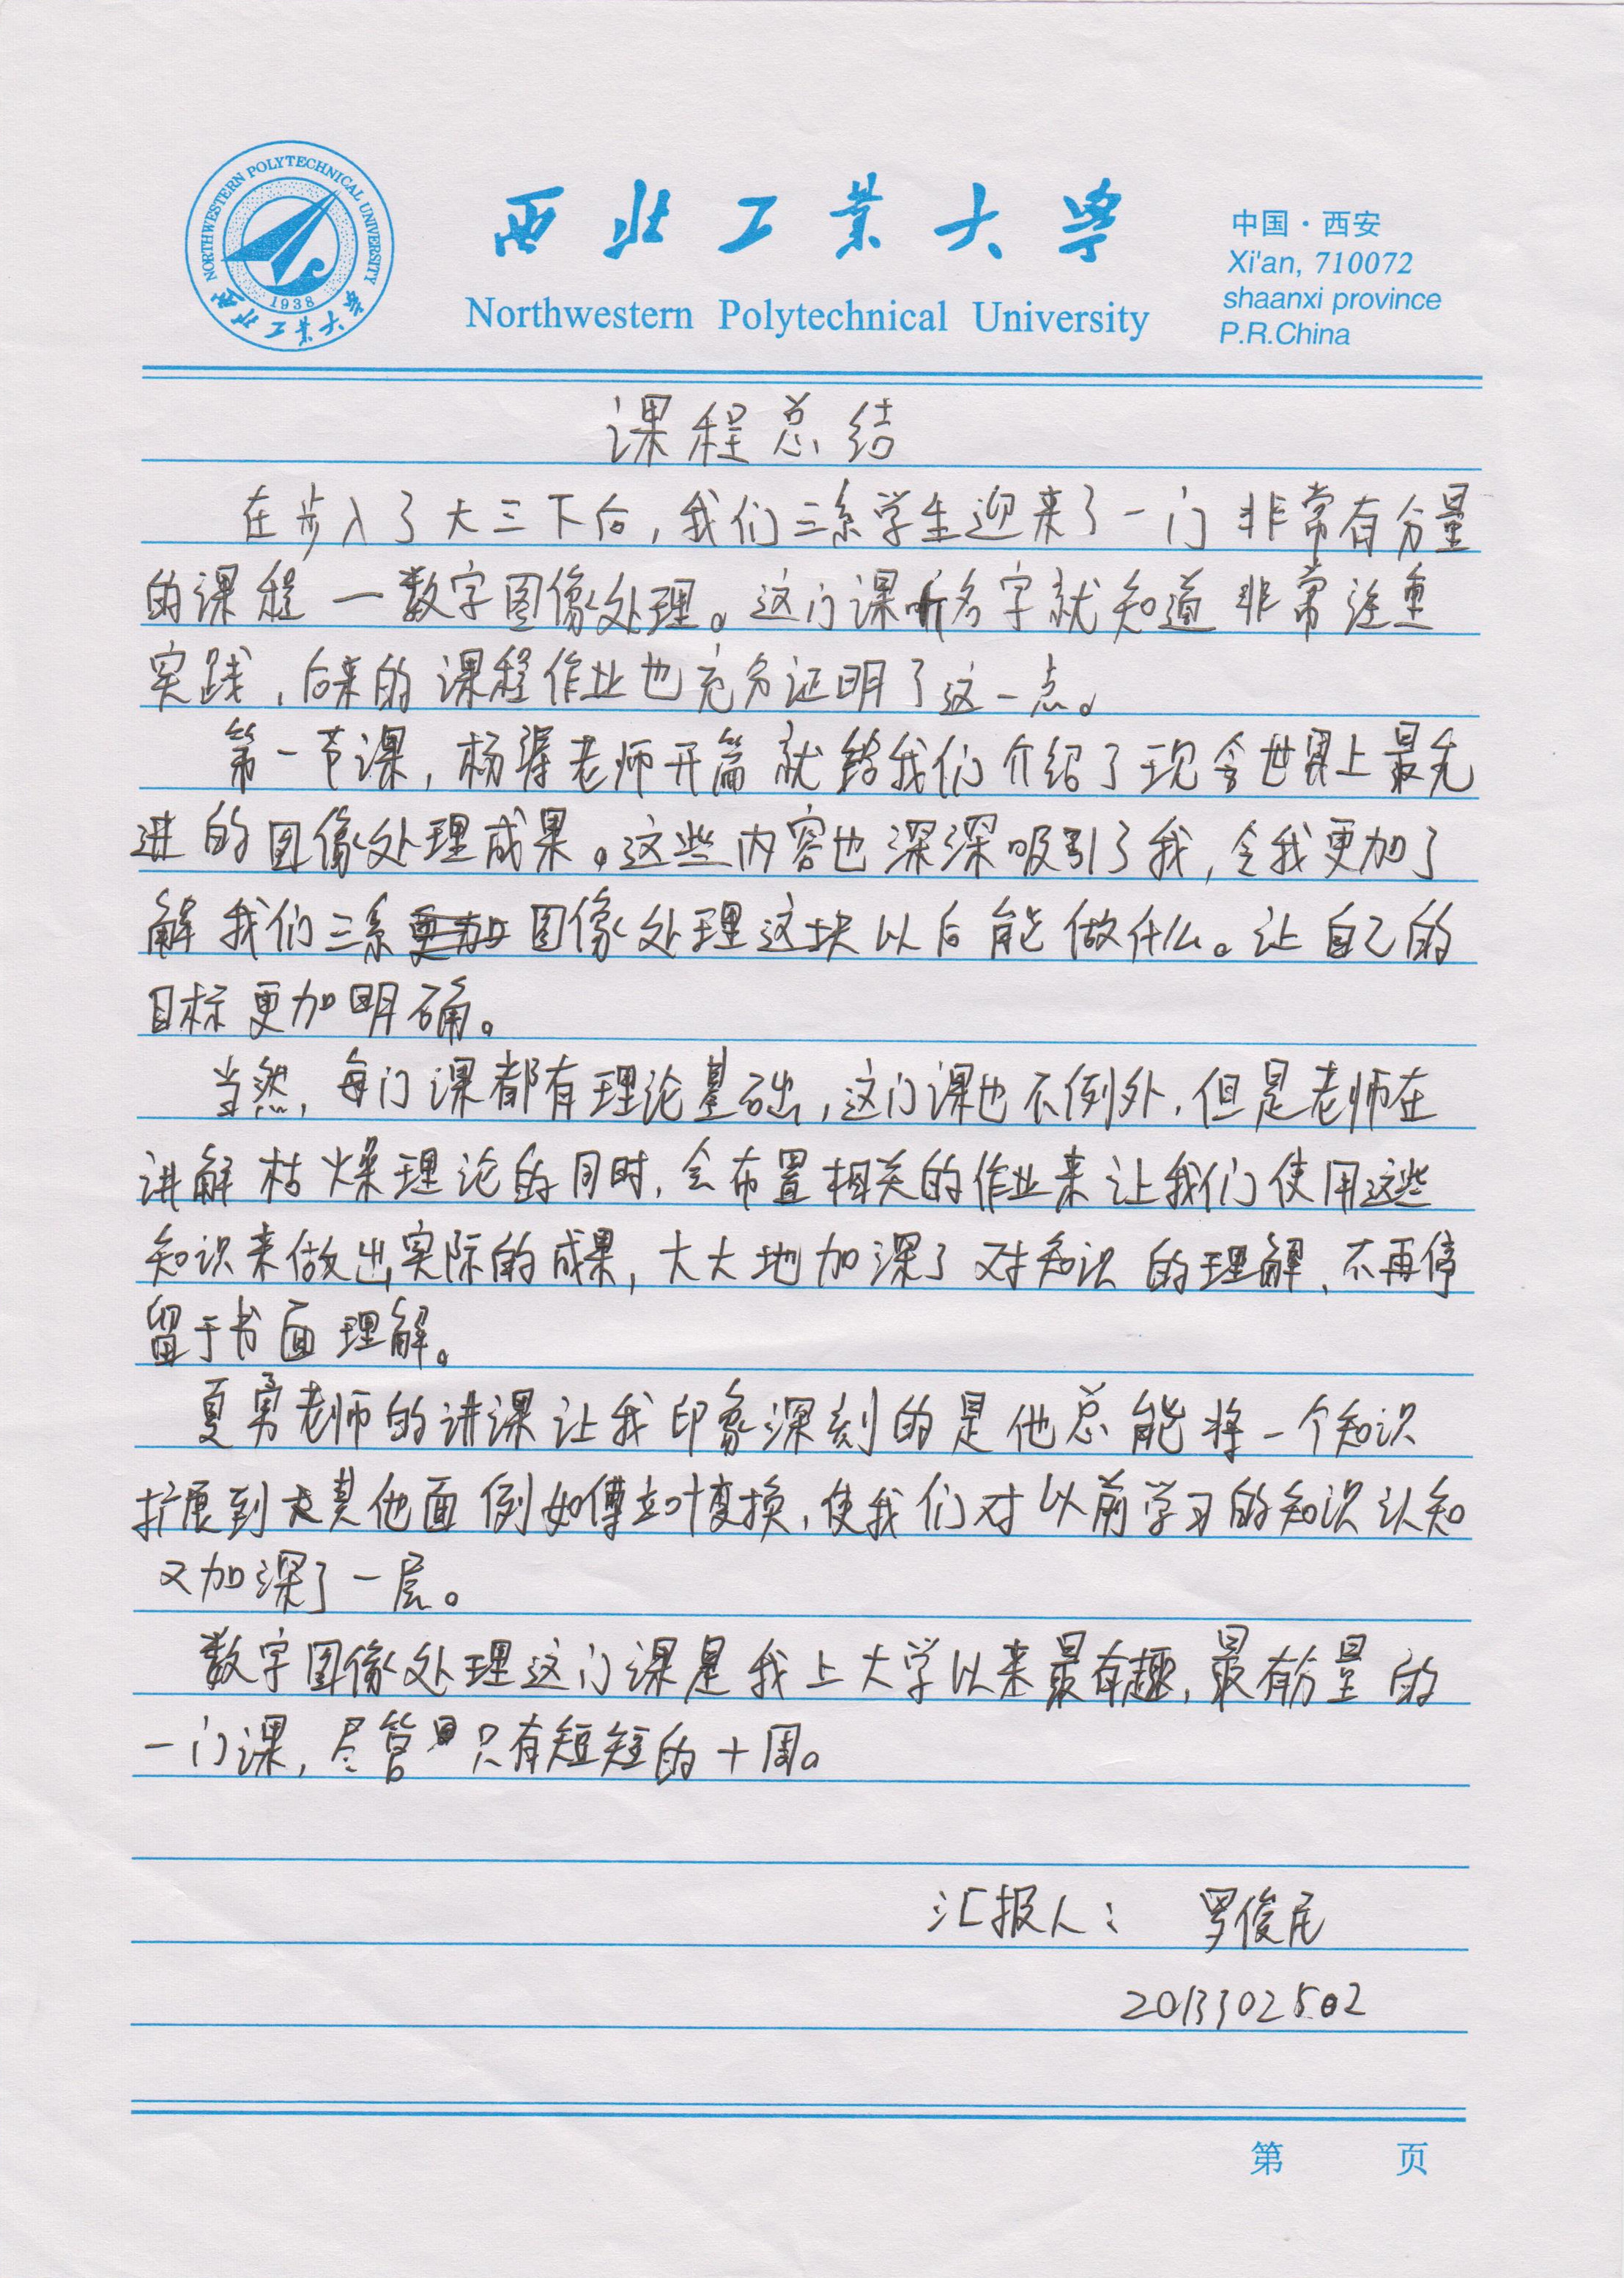 NORTHWESTERN POLYTECHNICAL UNIVERSITY
1938
西北工业大学
西北工业大学
Northwestern Polytechnical University
中国·西安
Xi'an, 710072
shaanxi province
P.R.China
课程总结
在步入了大三下后,我们三系学生迎来了一门非常有分量
的课程一数字图像处理。这门课听名字就知道非常注重
实践,后来的课程作业也充分证明了这一点。
第一节课,杨老师开篇就给我们介绍了现今世界上最先
进的图像处理成果。这些内容也深深吸引了我,令我更加了
解我们三系图像处理这块以后能做什么。让自己的
目标更加明确。
当然,每门课都有理论基础,这门课也不例外,但是老师在
讲解枯燥理论的同时,会布置相关的作业来让我们使用这些
知识来做出实际的成果,大大地加深了对知识的理解,不再停
留于书面理解。
夏勇老师的讲课让我印象深刻的是他总能将一个知识
扩展到其他面例如傅立叶变换,使我们对以前学习的知识认知
又加深了一层。
数字图像处理这门课是我上大学以来最有趣,最有分量的
一门课,尽管只有短短的十周。
汇报人: 罗俊
2013302502
第 页